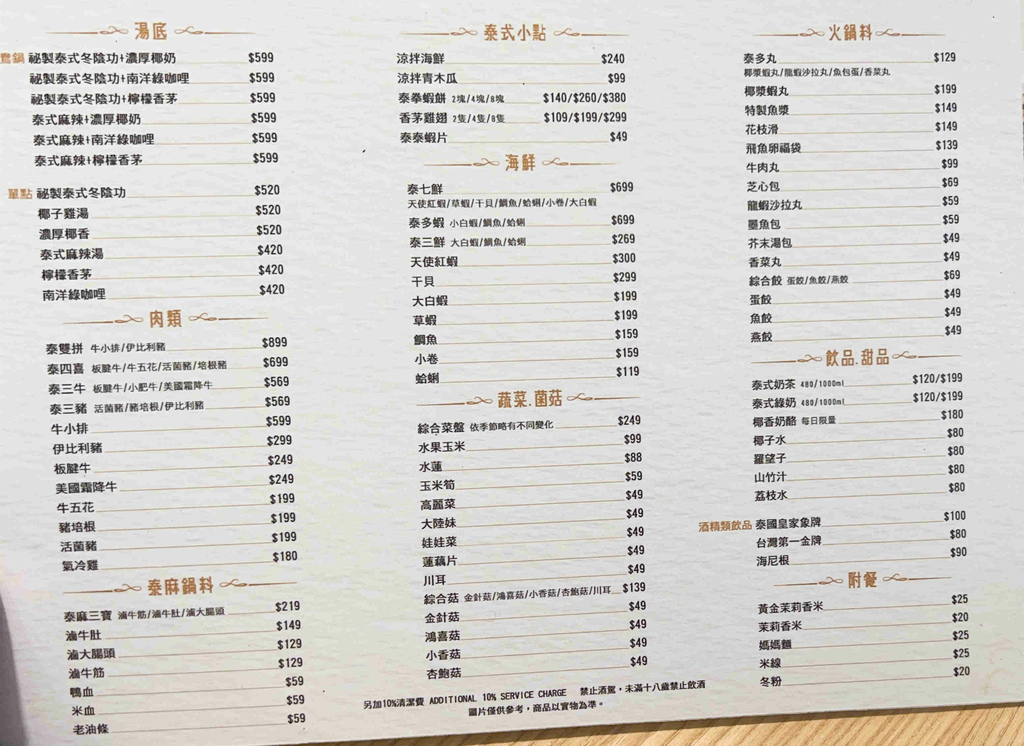 湯底
鴛鍋 祕製泰式冬陰功+濃厚椰奶 $599
祕製泰式冬陰功+南洋綠咖哩 $599
祕製泰式冬陰功+檸檬香茅 $599
泰式麻辣+濃厚椰奶 $599
泰式麻辣+南洋綠咖哩 $599
泰式麻辣+檸檬香茅 $599
單點 祕製泰式冬陰功 $520
椰子雞湯 $520
濃厚椰香 $520
泰式麻辣湯 $420
檸檬香茅 $420
南洋綠咖哩 $420
肉類
泰雙拼 牛小排/伊比利豬 $899
泰四喜 板腱牛/牛五花/活菌豬/培根豬 $699
泰三牛 板腱牛/小肥牛/美國霜降牛 $569
泰三豬 活菌豬/豬培根/伊比利豬 $569
牛小排 $599
伊比利豬 $299
板腱牛 $249
美國霜降牛 $249
牛五花 $199
豬培根 $199
活菌豬 $199
氣冷雞 $180
泰麻鍋料
泰麻三寶 滷牛筋/滷牛肚/滷大腸頭 $219
滷牛肚 $149
滷大腸頭 $129
滷牛筋 $129
鴨血 $59
米血 $59
老油條 $59
泰式小點
涼拌海鮮 $240
涼拌青木瓜 $99
泰拳蝦餅 2塊/4塊/8塊 $140/$260/$380
香茅雞翅 2隻/4隻/8隻 $109/$199/$299
泰泰蝦片 $49
海鮮
泰七鮮 $699
天使紅蝦/草蝦/干貝/鯛魚/蛤蜊/小卷/大白蝦
泰多蝦 小白蝦/鯛魚/蛤蜊 $699
泰三鮮 大白蝦/鯛魚/蛤蜊 $269
天使紅蝦 $300
干貝 $299
大白蝦 $199
草蝦 $199
鯛魚 $159
小卷 $159
蛤蜊 $119
蔬菜.菌菇
綜合菜盤 依季節略有不同變化 $249
水果玉米 $99
水蓮 $88
玉米筍 $59
高麗菜 $49
大陸妹 $49
娃娃菜 $49
蓮藕片 $49
川耳 $49
綜合菇 金針菇/鴻喜菇/小香菇/杏鮑菇/川耳 $139
金針菇 $49
鴻喜菇 $49
小香菇 $49
杏鮑菇 $49
火鍋料
泰多丸 $129
椰漿蝦丸/龍蝦沙拉丸/魚包蛋/香菜丸
椰漿蝦丸 $199
特製魚漿 $149
花枝滑 $149
飛魚卵福袋 $139
牛肉丸 $99
芝心包 $69
龍蝦沙拉丸 $59
墨魚包 $59
芥末湯包 $49
香菜丸 $49
綜合餃 蛋餃/魚餃/燕餃 $69
蛋餃 $49
魚餃 $49
燕餃 $49
飲品.甜品
泰式奶茶 480/1000ml $120/$199
泰式綠奶 480/1000ml $120/$199
椰香奶酪 每日限量 $180
椰子水 $80
羅望子 $80
山竹汁 $80
荔枝水 $80
酒精類飲品 泰國皇家象牌 $100
台灣第一金牌 $80
海尼根 $90
附餐
黃金茉莉香米 $25
茉莉香米 $20
媽媽麵 $25
米線 $25
冬粉 $20
另加10%清潔費 ADDITIONAL 10% SERVICE CHARGE 禁止酒駕,未滿十八歲禁止飲酒
圖片僅供參考,商品以實物為準。